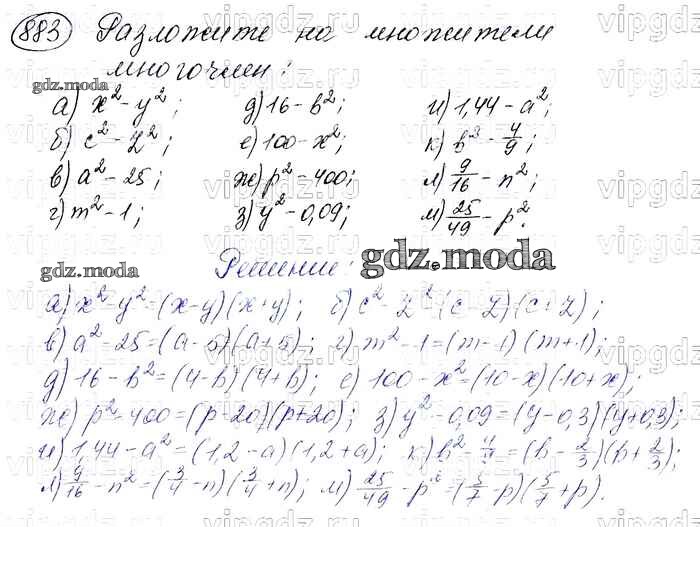 883 Разложите на множители
многочлен:
gdz.moda
а) x² - y²; д) 16 - b²; и) 1,44 - a²;
б) c² - z²; е) 100 - x²; к) b² - 4/9;
в) a² - 25; ж) p² - 400; л) 9/16 - n²;
г) m² - 1; з) y² - 0,09; м) 25/49 - p².
gdz.moda Решение: gdz.moda
а) x² - y² = (x - y)(x + y); б) c² - z² (c - z)(c + z);
в) a² - 25 = (a - 5)(a + 5); г) m² - 1 = (m - 1)(m + 1);
д) 16 - b² = (4 - b)(4 + b); е) 100 - x² = (10 - x)(10 + x);
ж) p² - 400 = (p - 20)(p + 20); з) y² - 0,09 = (y - 0,3)(y + 0,3);
и) 1,44 - a² = (1,2 - a)(1,2 + a); к) b² - 4/9 = (b - 2/3)(b + 2/3);
л) 9/16 - n² = (3/4 - n)(3/4 + n); м) 25/49 - p² = (5/7 - p)(5/7 + p).
vipgdz.ru